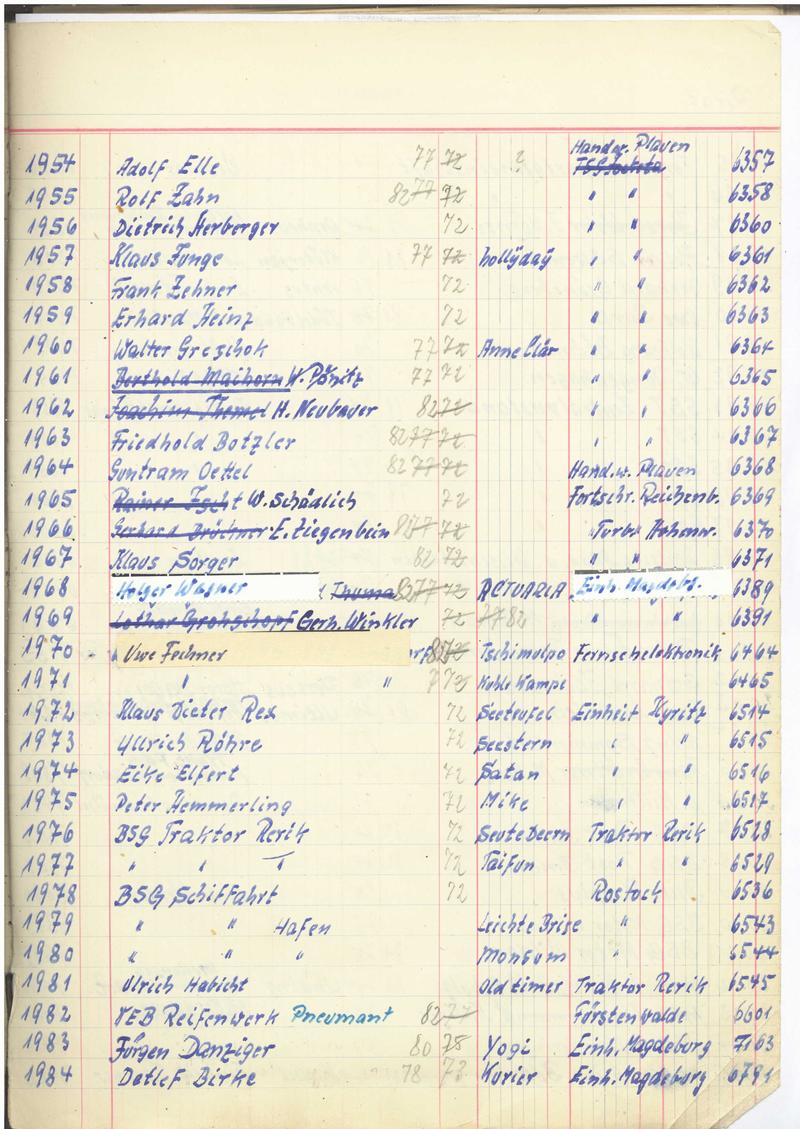 Handw. Plauen
1954 Adolf Elle 77 72 ? 6357
1955 Rolf Zahn 82 77 72 " " 6358
1956 Dietrich Herberger 72 " " 6360
1957 Klaus Junge 77 72 hollÿdaÿ " " 6361
1958 Frank Zehner 72 " " 6362
1959 Erhard Heinz 72 " " 6363
1960 Walter Greschok 77 72 Anne Clär " " 6364
1961 Berthold Maihorn W. Pönitz 77 72 " " 6365
1962 Joachim Themel H. Neubauer 82 72 " " 6366
1963 Friedhold Botzler 82 77 72 " " 6367
1964 Guntram Oettel 82 77 72 Hand.w. Plauen 6368
1965 W. Schädlich 72 Fortschr. Reichenb. 6369
1966 Gerhard Brückner E. Ziegenbein 82 77 72 "Turb. Hohenw. 6370
1967 Klaus Sorger 82 72 " " 6371
1968 Holger Wagner Thuma 82 77 72 ACTUARIA Einh. Magdebg. 6389
1969 Lothar Grohschopf Gerh. Winkler 72 77 82 " " 6391
1970 Uwe Fechner 82 72 Tschimulpo Fernsehelektronik 6464
1971 " " 7 72 Kuhle Wampe 6465
1972 Klaus Dieter Rex 72 Seeteufel Einheit Kyritz 6514
1973 Ullrich Röhre 72 Seestern " " 6515
1974 Eike Elfert 72 Satan " " 6516
1975 Peter Hemmerling 72 Mike " " 6517
1976 BSG Traktor Rerik 72 Seute Deern Traktor Rerik 6528
1977 " " " 72 Taifun " " 6529
1978 BSG Schiffahrt 72 Rostock 6536
1979 " " Hafen Leichte Brise " 6543
1980 " " " Monsum " " 6544
1981 Ulrich Habicht Oldtimer Traktor Rerik 6545
1982 VEB Reifenwerk Pneumant 82 77 Fürstenwalde 6601
1983 Jürgen Danziger 80 78 Yogi Einh. Magdeburg 7163
1984 Detlef Birke 78 73 Kurier Einh. Magdeburg 6791